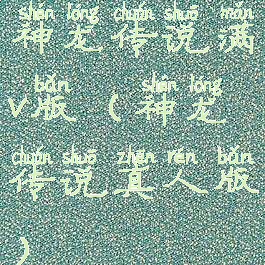 shén lóng chuán shuō mǎn
神龙传说满
bǎn shén lóng
v版（神龙
chuán shuō zhēn rén bǎn
传说真人版
）